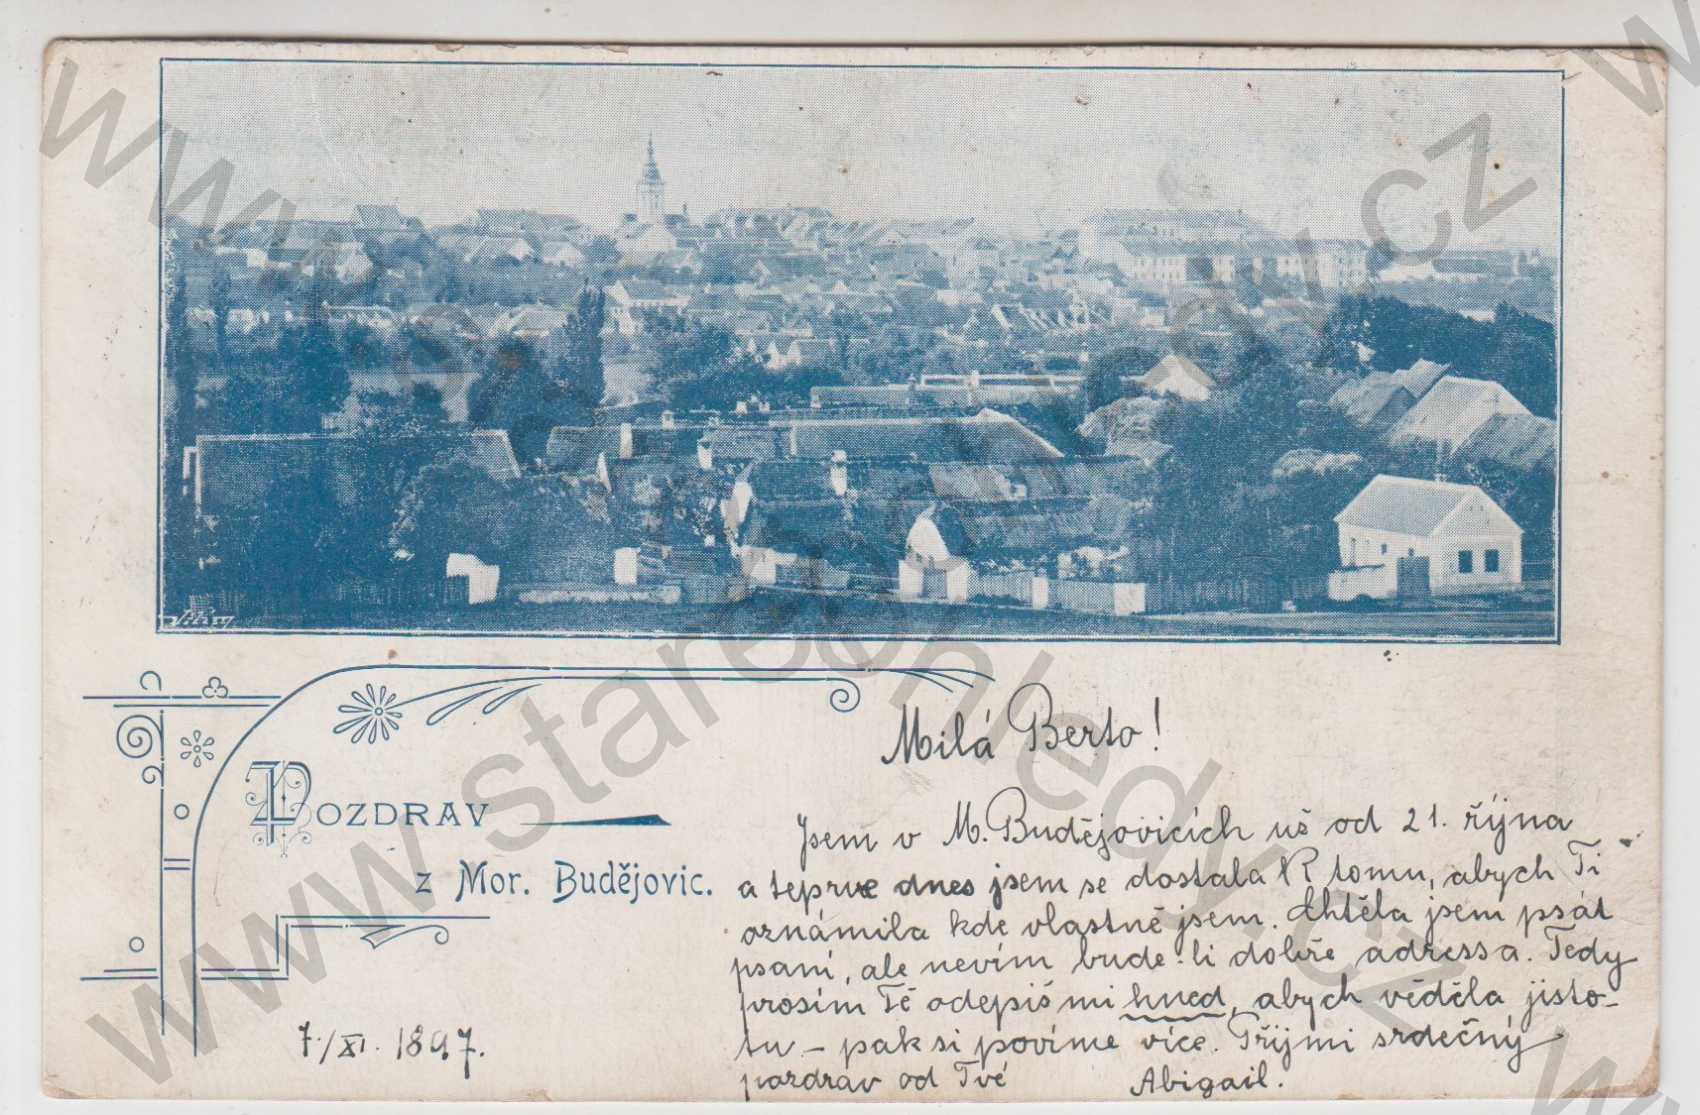 POZDRAV
z Mor. Budějovic.
7./XI. 1897.
Milá Berto!
Jsem v M. Budějovicích už od 21. října
a teprve dnes jsem se dostala K tomu, abych Ti
oznámila kde vlastně jsem. Chtěla jsem psát
psaní, ale nevím bude-li dobře adressa. Tedy
prosím Tě odepiš mi hned, abych věděla jisto-
tu – pak si povíme více. Přijmi srdečný
pozdrav od Tvé Abigail.
www.starepohledy.cz
www.starepohledy.cz